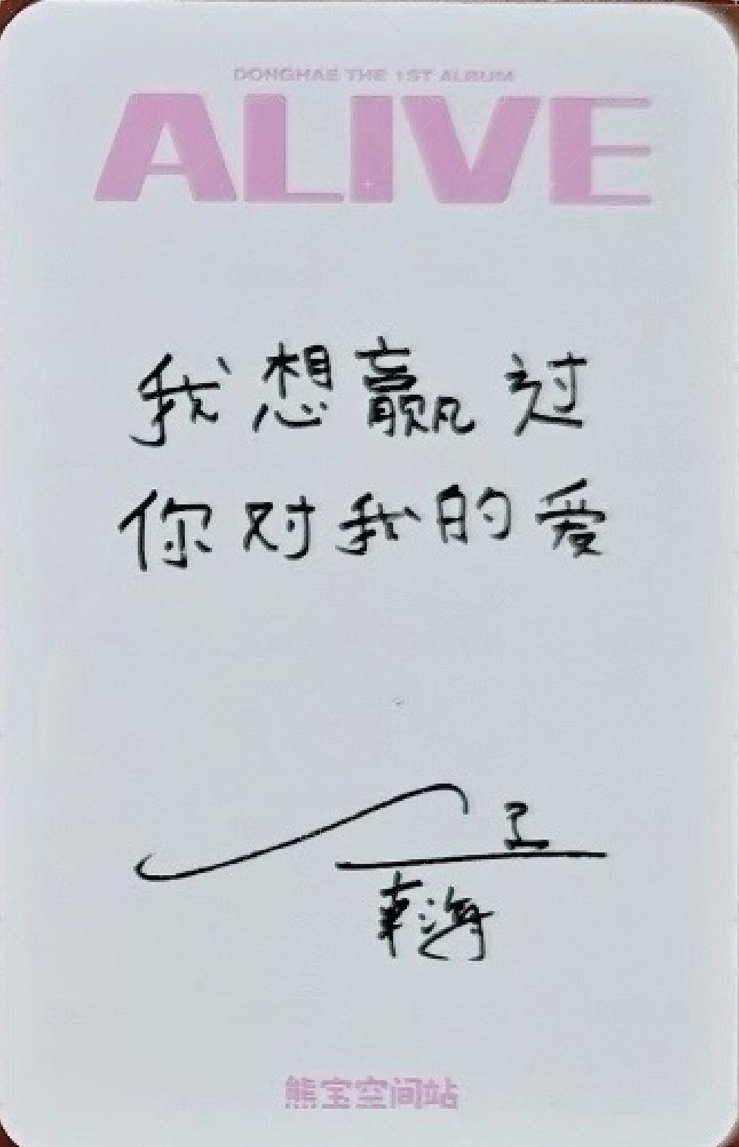 DONGHAE THE 1ST ALBUM
ALIVE
我想赢过
你对我的爱
東海
熊宝空间站